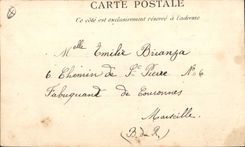 CARTE POSTALE
Ce côté est exclusivement réservé à l'adresse
Melle Emilie Brianza
6 Chemin de St Pierre No 6
Fabriquant de Couronnes
Marseille.
(B. d. R.)